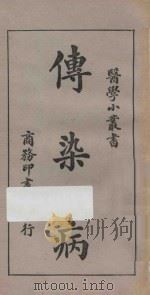 醫學小叢書
傳染病
商務印書
行
www.mtoou.info